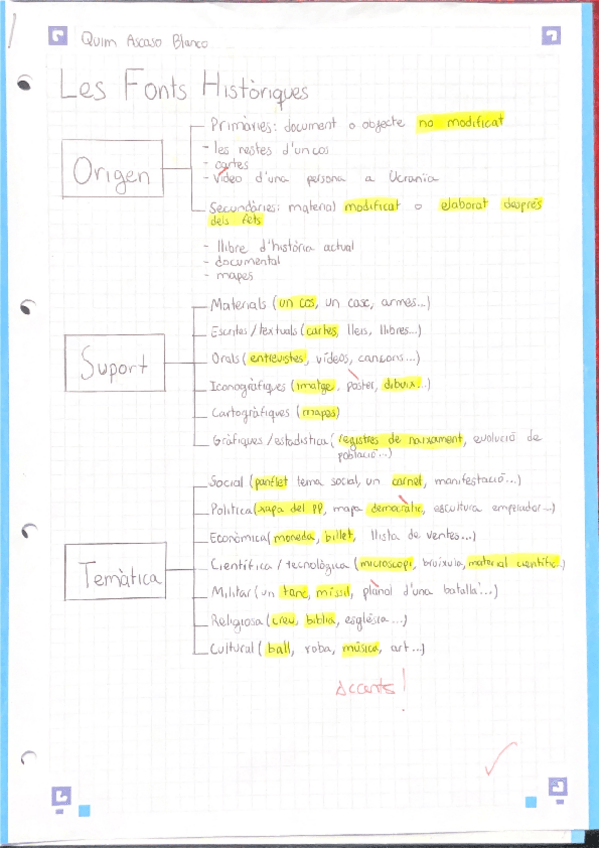 Quim Ascaso Blanco
Les Fonts Històriques
Origen
Primàries: document o objecte no modificat
- les restes d'un cos
- cartes
- vídeo d'una persona a Ucrania
Secundàries: material modificat o elaborat després
dels fets
- llibre d'història actual
- documental
- mapes
Suport
Materials (un cos, un casc, armes...)
Escrites / textuals (cartes, lleis, llibres...)
Orals (entrevistes, vídeos, cançons...)
Iconogràfiques (imatge, pòster, dibuix...)
Cartogràfiques (mapes)
Gràfiques / estadística (registres de naixament, evolució de
població...)
Temàtica
Social (panflet tema social, un carnet, manifestació...)
Política ( del PP, mapa democràtic, escultura emperador...)
Econòmica (moneda, billet, llista de ventes...)
Científica / tecnològica (microscopi, bruixula, material científic..)
Militar (un tanc, míssil, plànol d'una batalla...)
Religiosa (creu, biblia, església...)
Cultural (ball, roba, música, art...)
Accents!